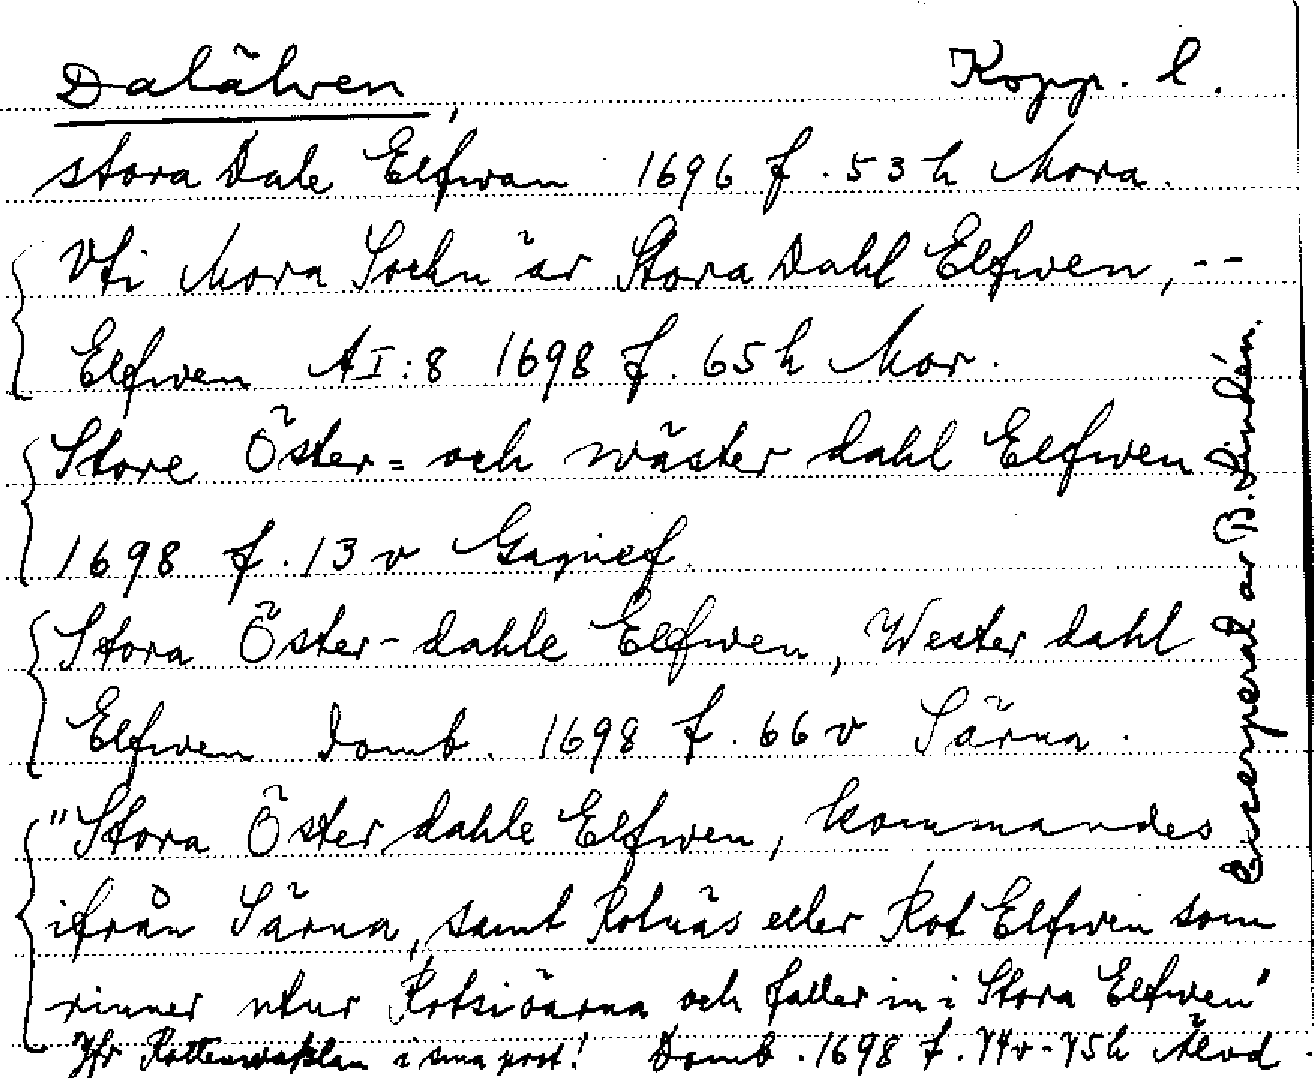 Dalälven, Kopp. l.
stora Dale Elfwan 1696 f. 53 h Mora.
Vti Mora Sochn är Stora Dahl Elfwen, --
Elfwen AI:8 1698 f. 65 h Mor.
Store Öster= och wäster dahl Elfwen
1698 f. 13 v Gagnef.
Stora Öster-dahle Elfwen, Wester dahl
Elfwen Domb. 1698 f. 66 v Särna.
"Stora Öster dahle Elfwen, kommandes
ifrån Särna, samt Rotnäs eller Rot Elfwen som
rinner utur Rotsiöarna och faller in i Stora Elfwen"
Jfr i sma post! Domb. 1698 f. 74v-75h Älvd.
Excerperat av B. Lindén.